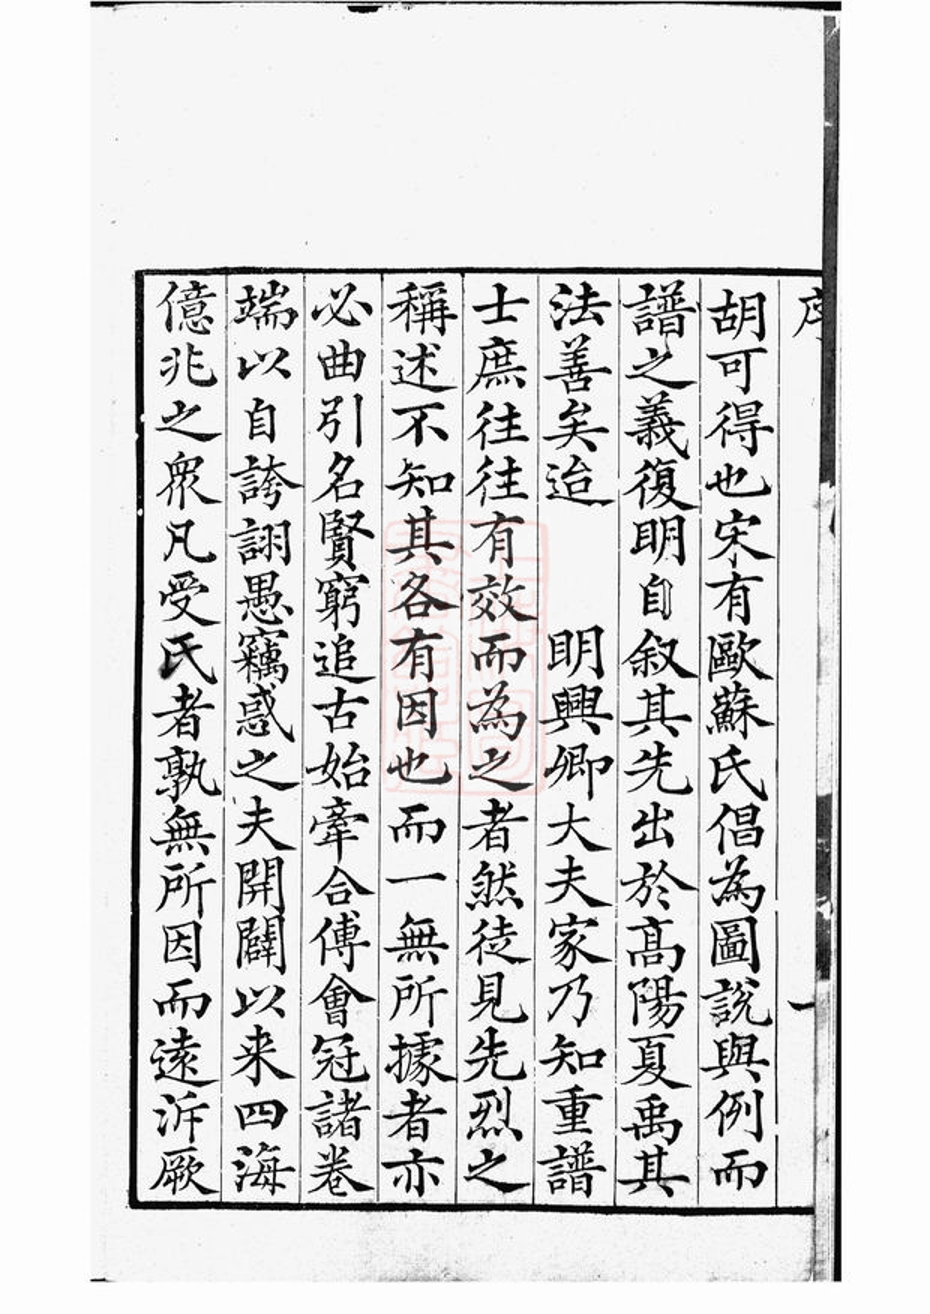 胡可得也宋有歐蘇氏倡為圖說與例而
譜之義復明自叙其先出於高陽夏禹其
法善矣迨　　明興卿大夫家乃知重譜
士庶往往有效而為之者然徒見先烈之
稱述不知其各有因也而一無所據者亦
必曲引名賢窮追古始牽合傅會冠諸卷
端以自誇詡愚竊惑之夫開闢以来四海
億兆之衆凡受氏者孰無所因而逺泝厥